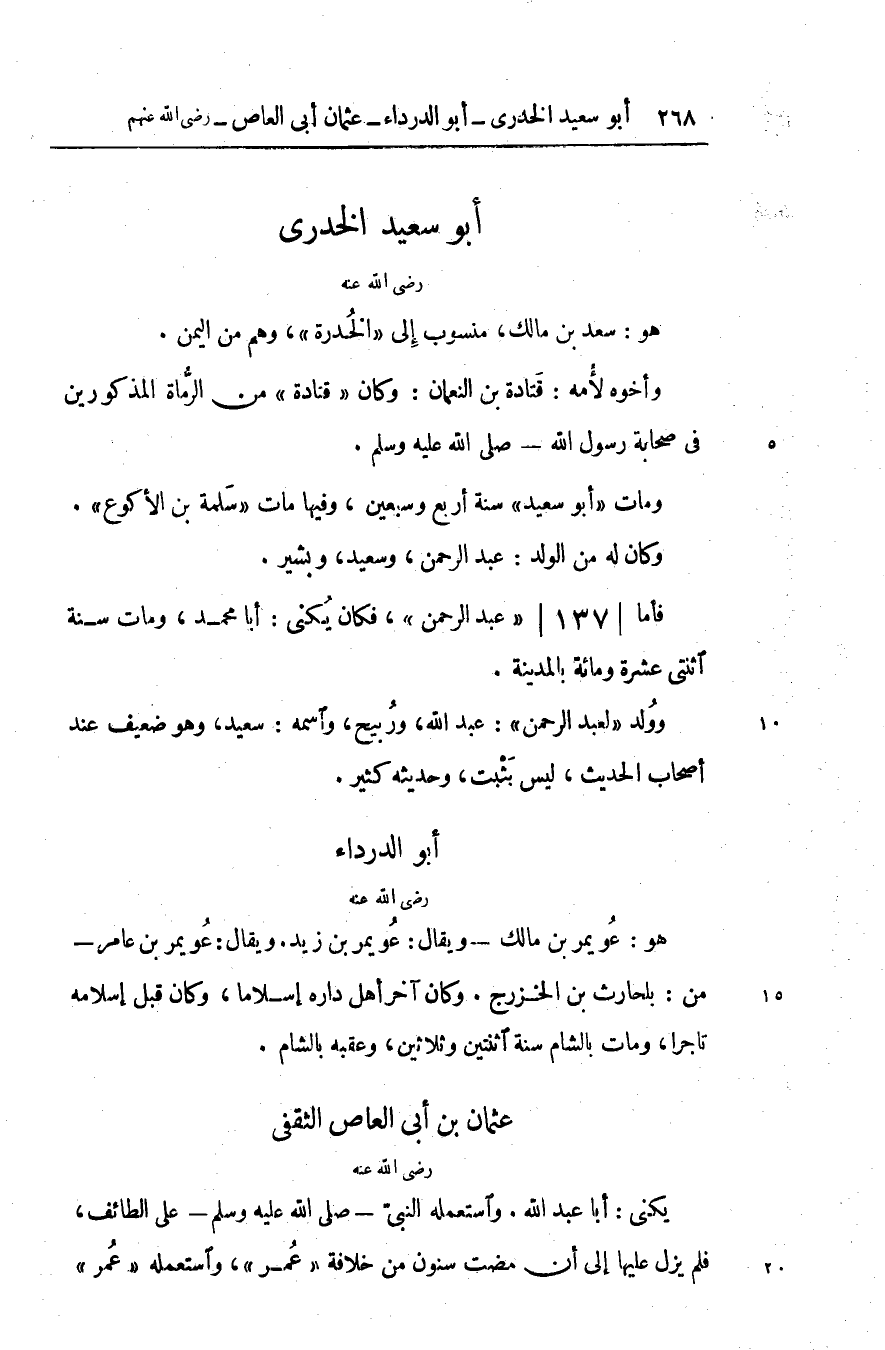 ٢٦٨ أبو سعيد الخدرى ــ أبو الدرداء ــ عثمان أبى العاص ــ رضى الله عنهم
أبو سعيد الخدرى
رضى الله عنه
هو : سعد بن مالك، منسوب إلى «الخُدرة»، وهم من اليمن .
وأخوه لأُمه : قَتادة بن النعمان : وكان « قتادة » من الرُّماة المذكورين
٥ فى صحابة رسول الله — صلى الله عليه وسلم .
ومات «أبو سعيد» سنة أربع وسبعين ، وفيها مات «سَلمة بن الأكوع» .
وكان له من الولد : عبد الرحمن ، وسعيد، وبشير .
فأما |١٣٧| « عبد الرحمن » ، فكان يُكنى : أبا محمـد ، ومات سـنة
ٱثنتى عشرة ومائة بالمدينة .
١٠ ووُلد «لعبد الرحمن» : عبد الله، ورُبيح، وٱسمه : سعيد، وهو ضعيف عند
أصحاب الحديث ، ليس بَثْبت، وحديثه كثير .
أبو الدرداء
رضى الله عنه
هو : عُويمر بن مالك — ويقال: عُويمر بن زيد. ويقال: عُويمر بن عامر —
١٥ من : بلحارث بن الخـزرج . وكان آخر أهل داره إسـلاما ، وكان قبل إسلامه
تاجرا، ومات بالشام سنة ٱثنتين وثلاثين، وعقبه بالشام .
عثمان بن أبى العاص الثقفى
رضى الله عنه
يكنى : أبا عبد الله . وٱستعمله النبىّ — صلى الله عليه وسلم — على الطائف،
٢٠ فلم يزل عليها إلى أن مضت سنون من خلافة « عُمـر »، وٱستعمله « عُمر »